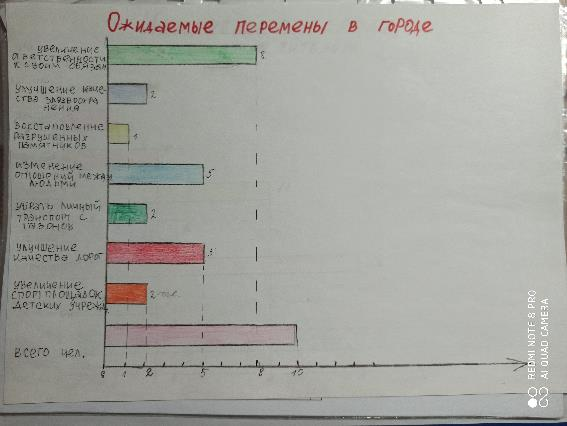 Ожидаемые перемены в городе
увеличение
ответственности
к своим обязан
8
улучшение каче
ства здравоохра
нения
2
восстановление
разрушенных
памятников
1
изменение
отношений между
людьми
5
убрать личный
транспорт с
газонов
2
улучшение
качества дорог
увеличение
спорт площадок
детских учрежд.
2 чел.
всего чел.
0 1 2 5 8 10
REDMI NOTE 8 PRO
AI QUAD CAMERA